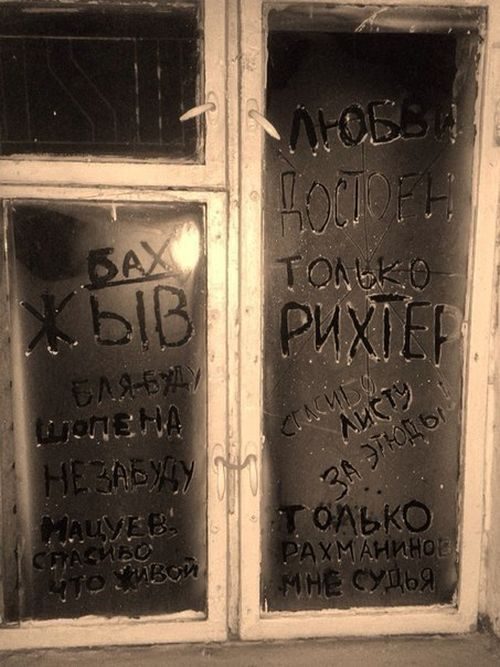 БАХ
ЖЫВ
БЛЯ БУДУ
ШОПЕНА
НЕ ЗАБУДУ
МАЦУЕВ,
СПАСИБО
ЧТО ЖИВОЙ
ЛЮБВИ
ДОСТОЕН
ТОЛЬКО
РИХТЕР
СПАСИБО
ЛИСТУ
ЗА ЭТЮДЫ!
ТОЛЬКО
РАХМАНИНОВ
МНЕ СУДЬЯ